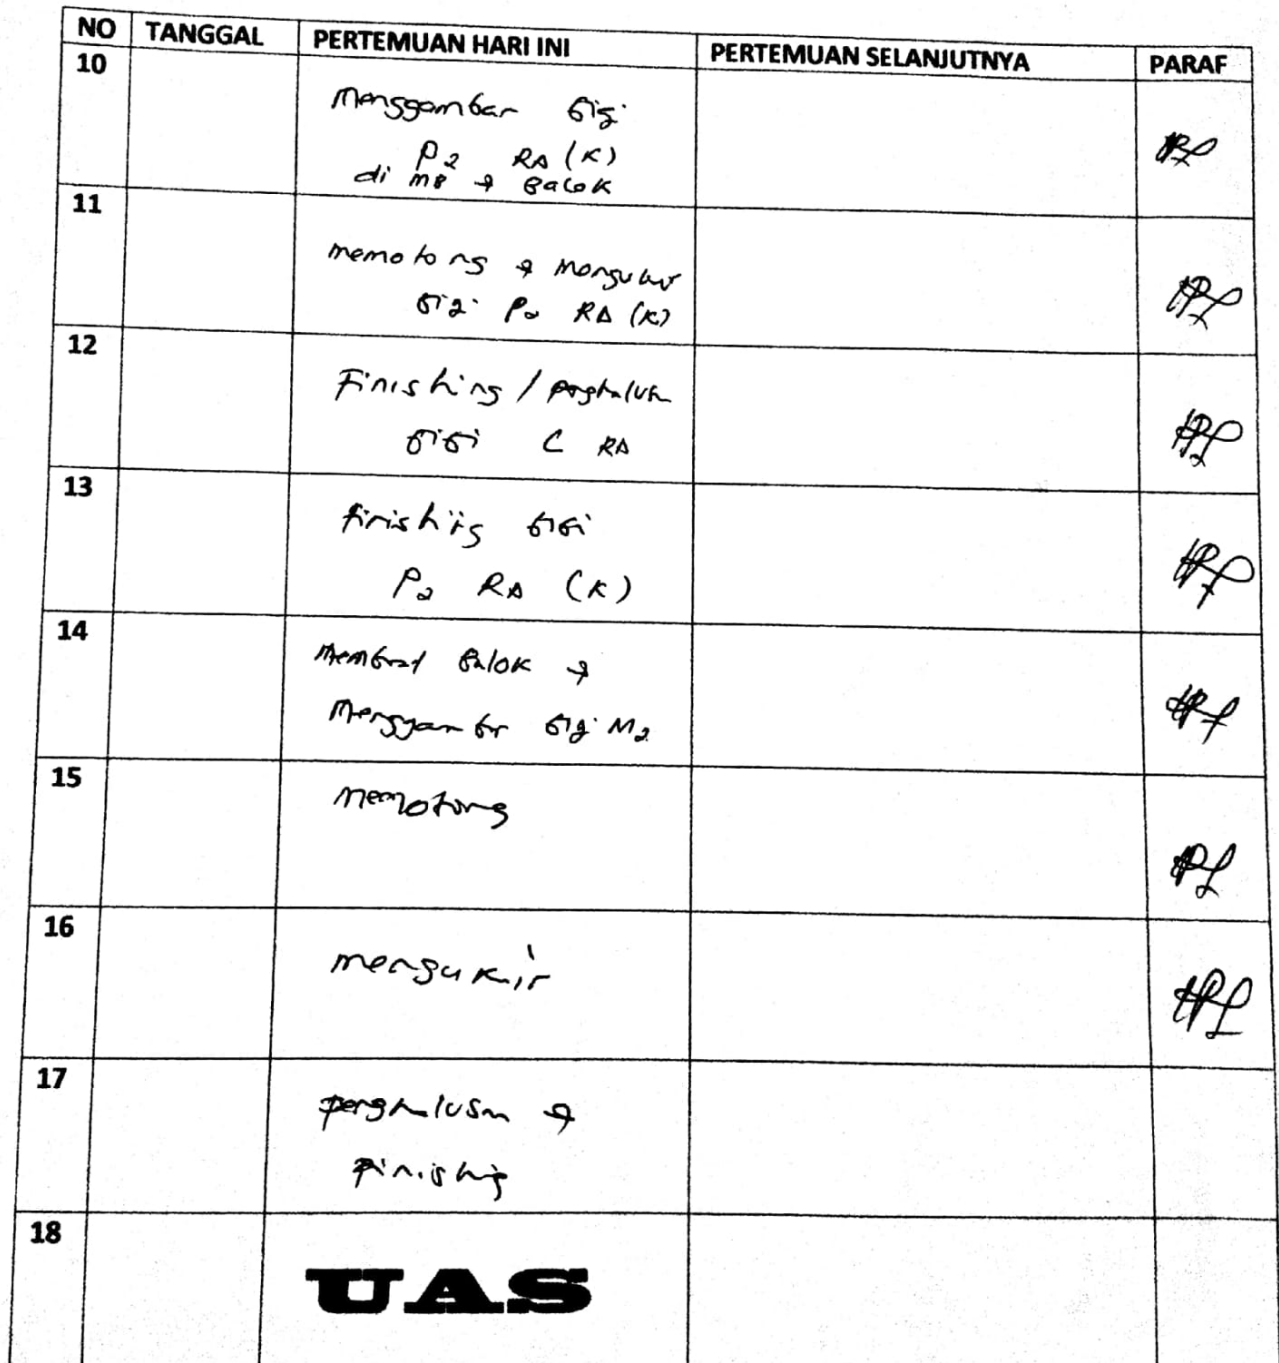 NO TANGGAL PERTEMUAN HARI INI PERTEMUAN SELANJUTNYA PARAF
10
Menggambar Gigi
P2 RA (K)
di MB → Balok
11
memotong → Mengukir
Gigi P2 RA (K)
12
Finishing / penghalusan
Gigi C RA
13
finishing Gigi
P2 RA (K)
14
Membuat Balok →
Menggambar Gigi M2
15
memotong
16
mengukir
17
penghalusan →
finishing
18
UAS